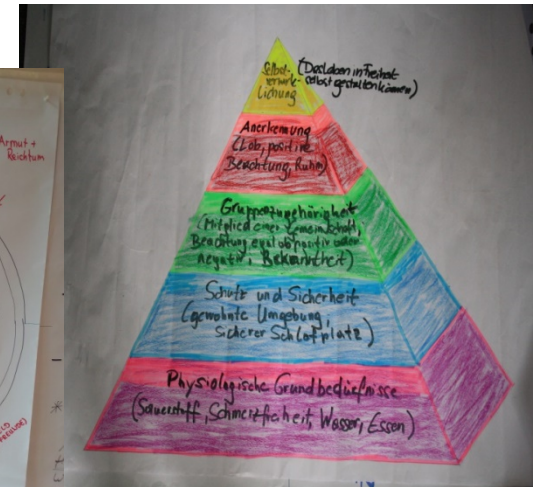 Armut +
Reichtum
Selbst-
verwirk-
lichung
(Das Leben in Freiheit
selbst gestalten können)
Anerkennung
(Lob, positive
Beachtung, Ruhm)
Gruppenzugehörigkeit
(Mitglied einer Gemeinschaft,
Beachtung egal ob positiv oder
negativ, Bekanntheit)
Schutz und Sicherheit
(gewohnte Umgebung,
sicherer Schlafplatz)
Physiologische Grundbedürfnisse
(Sauerstoff, Schmerzfreiheit, Wasser, Essen)